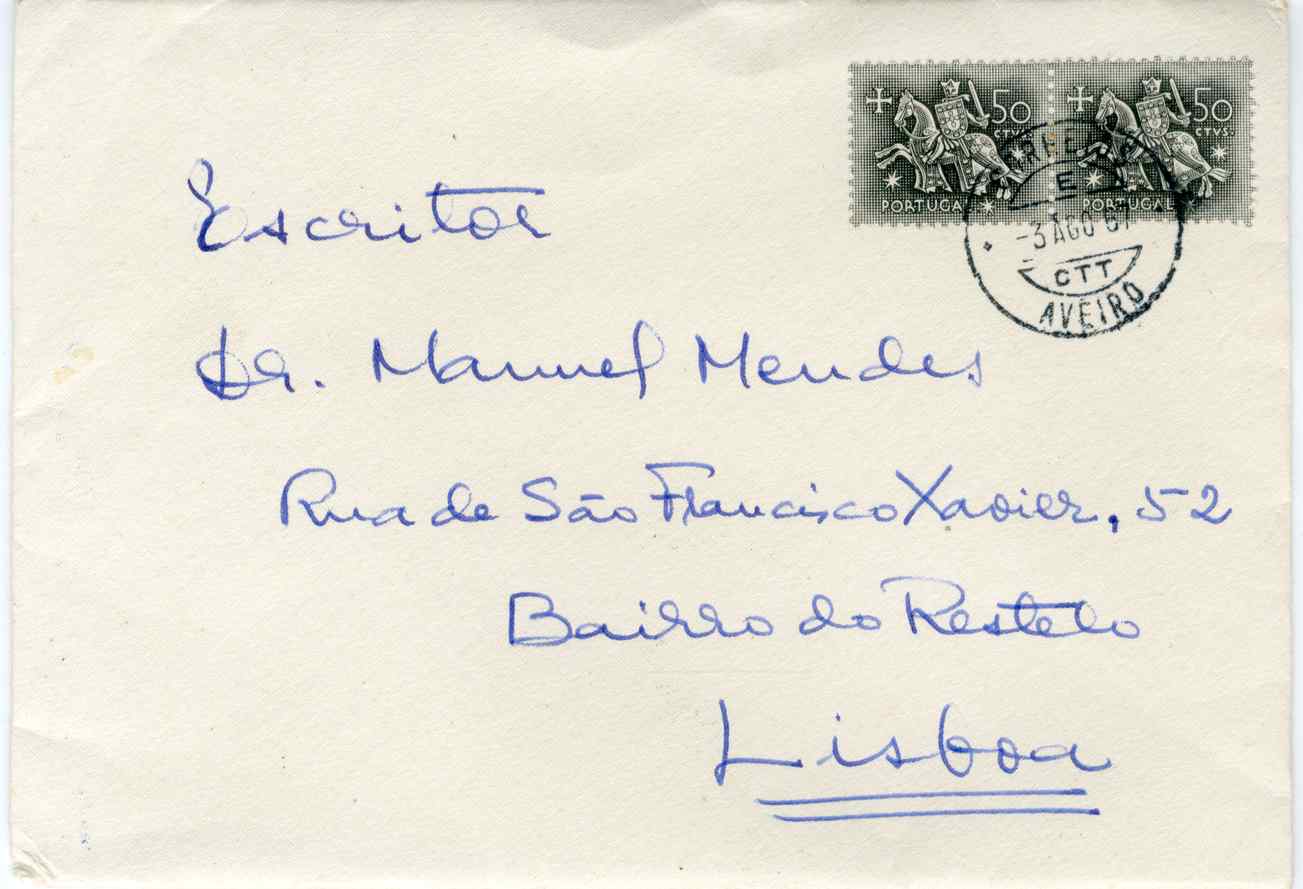 50 50
CTVS. CTVS.
PORTUGAL PORTUGAL
CORREIOS
E
-3 AGO 67
CTT
AVEIRO
Escritor
Dr. Manuel Mendes
Rua de São Francisco Xavier, 52
Bairro do Restelo
Lisboa